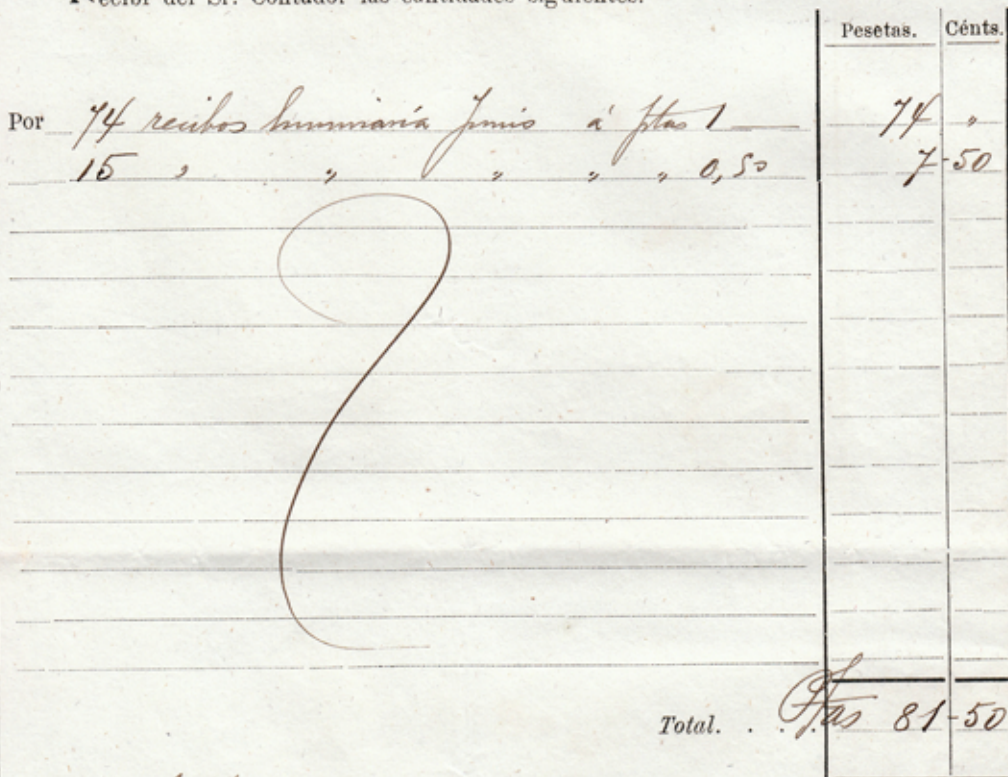 Recibí del Sr. Contador las cantidades siguientes:
Pesetas. Cénts.
Por 74 recibos Junio á Ptas 1 74 "
15 " " " " " 0,50 7-50
Total. . . Ptas 81-50